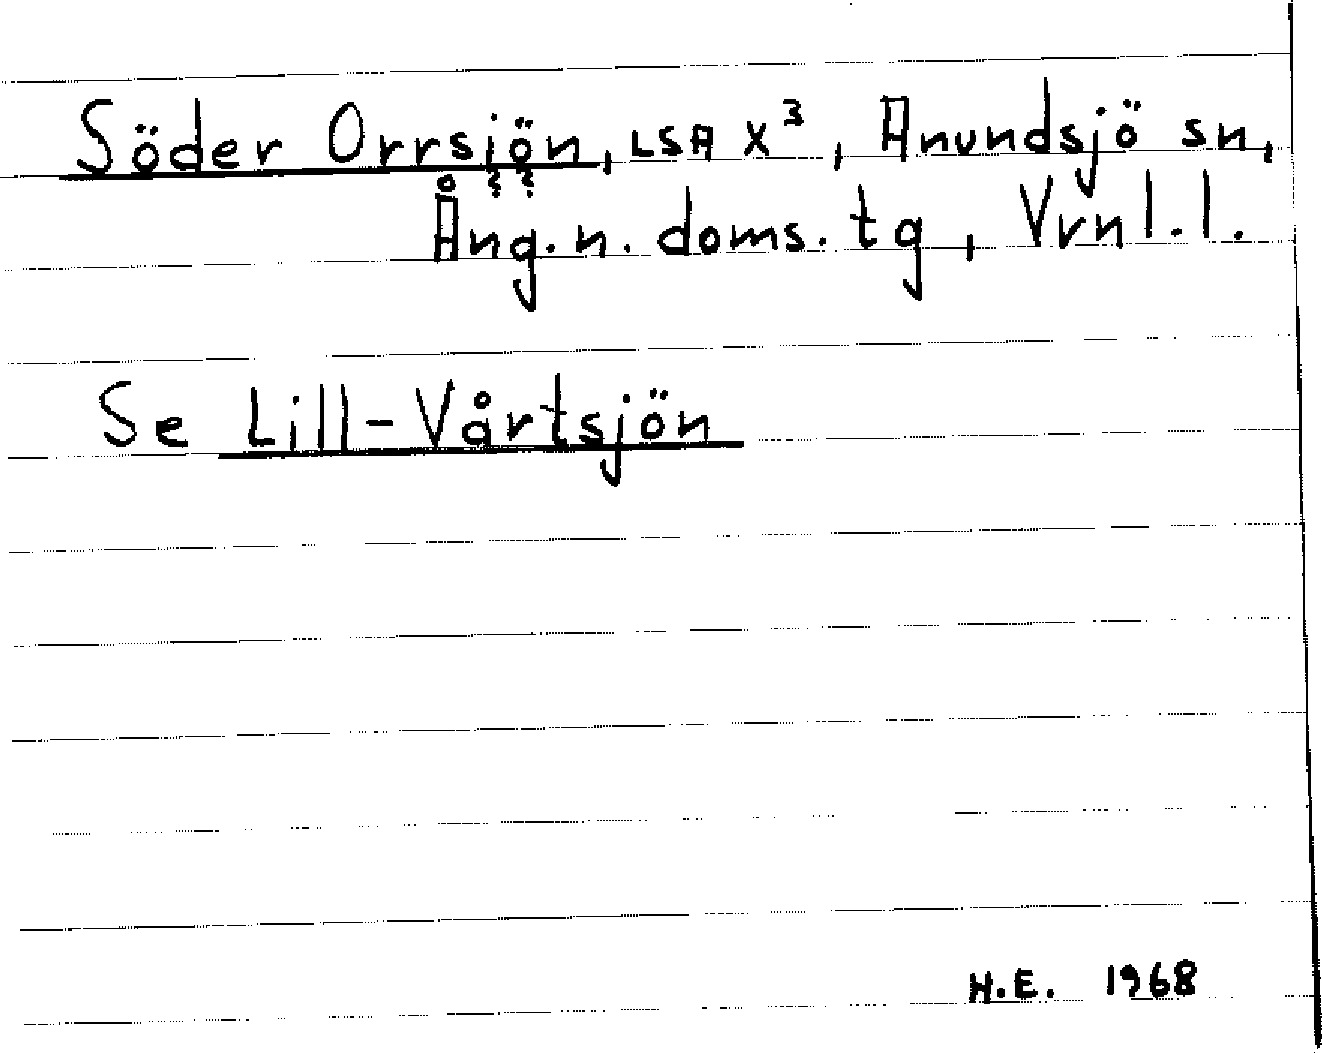 Söder Orrsjön, LSA X³, Anundsjö sn,
Ång. n. doms. tg, Vrnl. l.
Se Lill-Vårtsjön
H.E. 1968